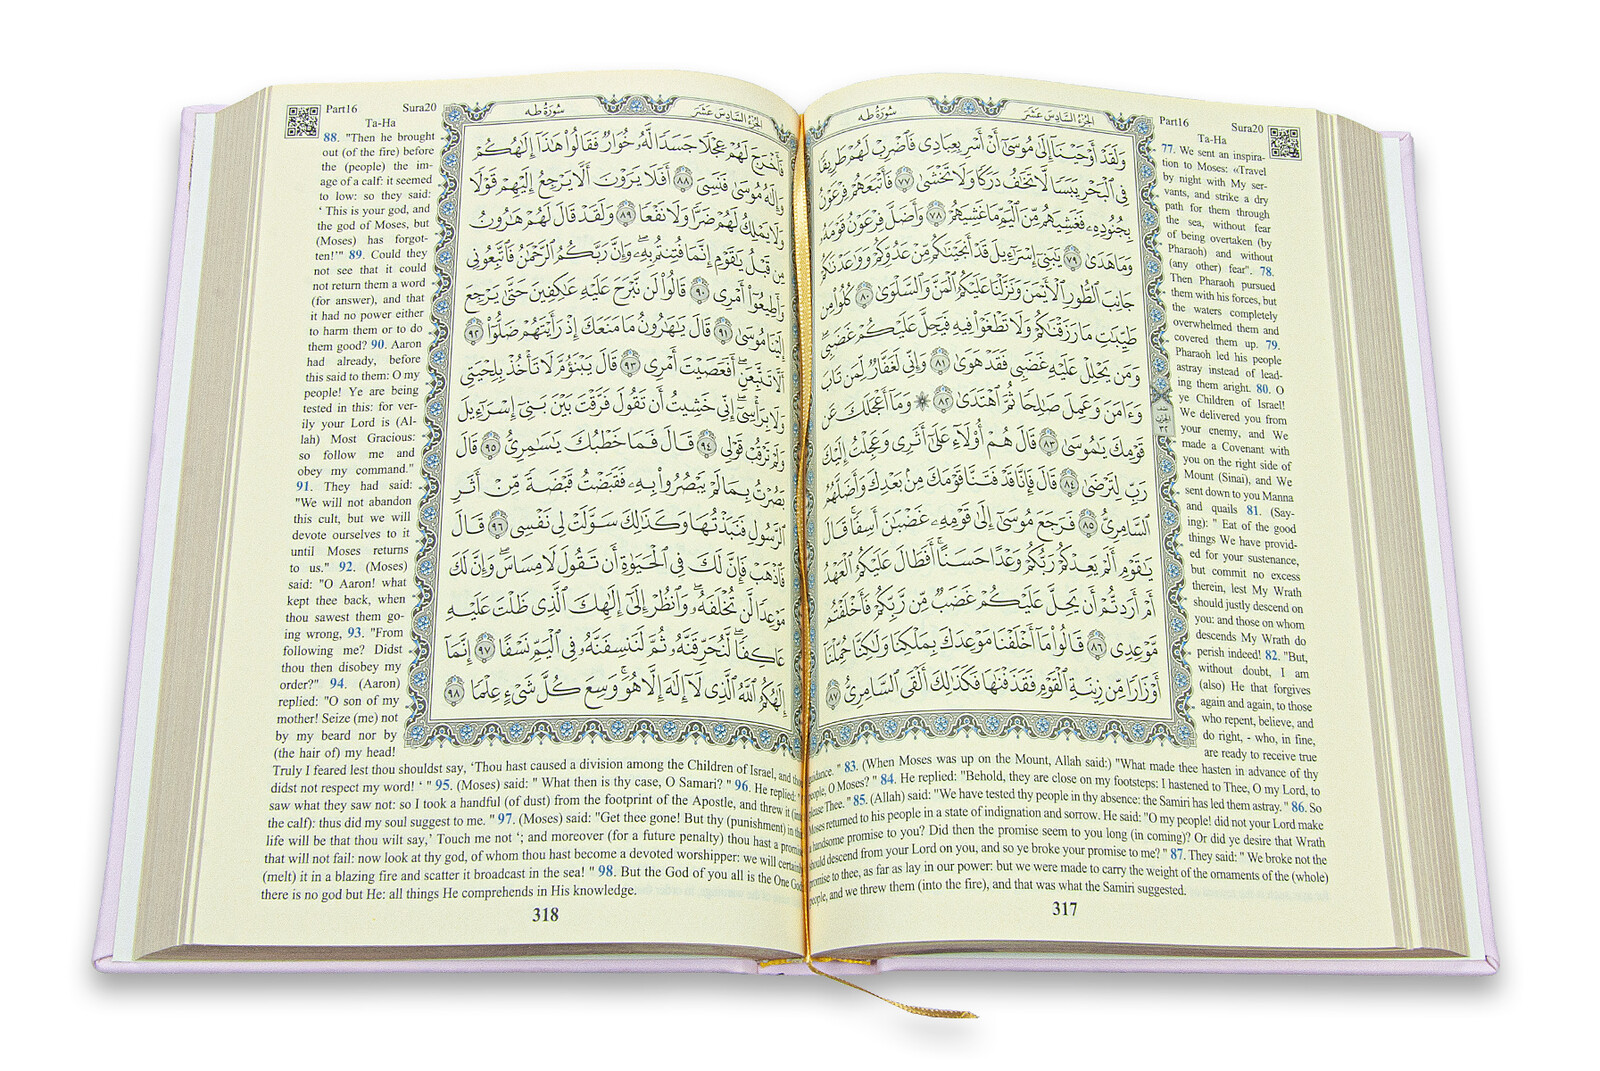 الجُزءُ السَّادِسَ عَشَرَ
سُورَةُ طه
وَلَقَدْ أَوْحَيْنَآ إِلَىٰ مُوسَىٰٓ أَنْ أَسْرِ بِعِبَادِى فَٱضْرِبْ لَهُمْ طَرِيقًا
فِى ٱلْبَحْرِ يَبَسًا لَّا تَخَٰفُ دَرَكًا وَلَا تَخْشَىٰ ٧٧ فَأَتْبَعَهُمْ فِرْعَوْنُ
بِجُنُودِهِۦ فَغَشِيَهُم مِّنَ ٱلْيَمِّ مَا غَشِيَهُمْ ٧٨ وَأَضَلَّ فِرْعَوْنُ قَوْمَهُۥ
وَمَا هَدَىٰ ٧٩ يَٰبَنِىٓ إِسْرَٰٓءِيلَ قَدْ أَنجَيْنَٰكُم مِّنْ عَدُوِّكُمْ وَوَٰعَدْنَٰكُمْ
جَانِبَ ٱلطُّورِ ٱلْأَيْمَنَ وَنَزَّلْنَا عَلَيْكُمُ ٱلْمَنَّ وَٱلسَّلْوَىٰ ٨٠ كُلُوا۟ مِن
طَيِّبَٰتِ مَا رَزَقْنَٰكُمْ وَلَا تَطْغَوْا۟ فِيهِ فَيَحِلَّ عَلَيْكُمْ غَضَبِى
وَمَن يَحْلِلْ عَلَيْهِ غَضَبِى فَقَدْ هَوَىٰ ٨١ وَإِنِّى لَغَفَّارٌ لِّمَن تَابَ
وَءَامَنَ وَعَمِلَ صَٰلِحًا ثُمَّ ٱهْتَدَىٰ ٨٢ ۞ وَمَآ أَعْجَلَكَ عَن
قَوْمِكَ يَٰمُوسَىٰ ٨٣ قَالَ هُمْ أُو۟لَآءِ عَلَىٰٓ أَثَرِى وَعَجِلْتُ إِلَيْكَ
رَبِّ لِتَرْضَىٰ ٨٤ قَالَ فَإِنَّا قَدْ فَتَنَّا قَوْمَكَ مِنۢ بَعْدِكَ وَأَضَلَّهُمُ
ٱلسَّامِرِىُّ ٨٥ فَرَجَعَ مُوسَىٰٓ إِلَىٰ قَوْمِهِۦ غَضْبَٰنَ أَسِفًا ۚ قَالَ
يَٰقَوْمِ أَلَمْ يَعِدْكُمْ رَبُّكُمْ وَعْدًا حَسَنًا ۚ أَفَطَالَ عَلَيْكُمُ ٱلْعَهْدُ
أَمْ أَرَدتُّمْ أَن يَحِلَّ عَلَيْكُمْ غَضَبٌ مِّن رَّبِّكُمْ فَأَخْلَفْتُم
مَّوْعِدِى ٨٦ قَالُوا۟ مَآ أَخْلَفْنَا مَوْعِدَكَ بِمَلْكِنَا وَلَٰكِنَّا حُمِّلْنَآ
أَوْزَارًا مِّن زِينَةِ ٱلْقَوْمِ فَقَذَفْنَٰهَا فَكَذَٰلِكَ أَلْقَى ٱلسَّامِرِىُّ ٨٧
Part16 Sura20
Ta-Ha
77. We sent an inspira-
tion to Moses: «Travel
by night with My ser-
vants, and strike a dry
path for them through
the sea, without fear
of being overtaken (by
Pharaoh) and without
(any other) fear". 78.
Then Pharaoh pursued
them with his forces, but
the waters completely
overwhelmed them and
covered them up. 79.
Pharaoh led his people
astray instead of lead-
ing them aright. 80. O
ye Children of Israel!
We delivered you from
your enemy, and We
made a Covenant with
you on the right side of
Mount (Sinai), and We
sent down to you Manna
and quails 81. (Say-
ing): " Eat of the good
things We have provid-
ed for your sustenance,
but commit no excess
therein, lest My Wrath
should justly descend on
you: and those on whom
descends My Wrath do
perish indeed! 82. "But,
without doubt, I am
(also) He that forgives
again and again, to those
who repent, believe, and
do right, - who, in fine,
are ready to receive true
guidance. " 83. (When Moses was up on the Mount, Allah said:) "What made thee hasten in advance of thy
people, O Moses? " 84. He replied: "Behold, they are close on my footsteps: I hastened to Thee, O my Lord, to
please Thee. " 85. (Allah) said: "We have tested thy people in thy absence: the Samiri has led them astray. " 86. So
Moses returned to his people in a state of indignation and sorrow. He said: "O my people! did not your Lord make
a handsome promise to you? Did then the promise seem to you long (in coming)? Or did ye desire that Wrath
should descend from your Lord on you, and so ye broke your promise to me? " 87. They said: " We broke not the
promise to thee, as far as lay in our power: but we were made to carry the weight of the ornaments of the (whole)
people, and we threw them (into the fire), and that was what the Samiri suggested.
317
الجُزءُ السَّادِسَ عَشَرَ
سُورَةُ طه
فَأَخْرَجَ لَهُمْ عِجْلًا جَسَدًا لَّهُۥ خُوَارٌ فَقَالُوا۟ هَٰذَآ إِلَٰهُكُمْ
وَإِلَٰهُ مُوسَىٰ فَنَسِىَ ٨٨ أَفَلَا يَرَوْنَ أَلَّا يَرْجِعُ إِلَيْهِمْ قَوْلًا
وَلَا يَمْلِكُ لَهُمْ ضَرًّا وَلَا نَفْعًا ٨٩ وَلَقَدْ قَالَ لَهُمْ هَٰرُونُ
مِن قَبْلُ يَٰقَوْمِ إِنَّمَا فُتِنتُم بِهِۦ ۖ وَإِنَّ رَبَّكُمُ ٱلرَّحْمَٰنُ فَٱتَّبِعُونِى
وَأَطِيعُوٓا۟ أَمْرِى ٩٠ قَالُوا۟ لَن نَّبْرَحَ عَلَيْهِ عَٰكِفِينَ حَتَّىٰ يَرْجِعَ
إِلَيْنَا مُوسَىٰ ٩١ قَالَ يَٰهَٰرُونُ مَا مَنَعَكَ إِذْ رَأَيْتَهُمْ ضَلُّوٓا۟ ٩٢
أَلَّا تَتَّبِعَنِ ۖ أَفَعَصَيْتَ أَمْرِى ٩٣ قَالَ يَبْنَؤُمَّ لَا تَأْخُذْ بِلِحْيَتِى
وَلَا بِرَأْسِىٓ ۖ إِنِّى خَشِيتُ أَن تَقُولَ فَرَّقْتَ بَيْنَ بَنِىٓ إِسْرَٰٓءِيلَ
وَلَمْ تَرْقُبْ قَوْلِى ٩٤ قَالَ فَمَا خَطْبُكَ يَٰسَٰمِرِىُّ ٩٥ قَالَ
بَصُرْتُ بِمَا لَمْ يَبْصُرُوا۟ بِهِۦ فَقَبَضْتُ قَبْضَةً مِّنْ أَثَرِ
ٱلرَّسُولِ فَنَبَذْتُهَا وَكَذَٰلِكَ سَوَّلَتْ لِى نَفْسِى ٩٦ قَالَ
فَٱذْهَبْ فَإِنَّ لَكَ فِى ٱلْحَيَوٰةِ أَن تَقُولَ لَا مِسَاسَ ۖ وَإِنَّ لَكَ
مَوْعِدًا لَّن تُخْلَفَهُۥ ۖ وَٱنظُرْ إِلَىٰٓ إِلَٰهِكَ ٱلَّذِى ظَلْتَ عَلَيْهِ
عَاكِفًا ۖ لَّنُحَرِّقَنَّهُۥ ثُمَّ لَنَنسِفَنَّهُۥ فِى ٱلْيَمِّ نَسْفًا ٩٧ إِنَّمَآ
إِلَٰهُكُمُ ٱللَّهُ ٱلَّذِى لَآ إِلَٰهَ إِلَّا هُوَ ۚ وَسِعَ كُلَّ شَىْءٍ عِلْمًا ٩٨
Part16 Sura20
Ta-Ha
88. "Then he brought
out (of the fire) before
the (people) the im-
age of a calf: it seemed
to low: so they said:
‘ This is your god, and
the god of Moses, but
(Moses) has forgot-
ten!’" 89. Could they
not see that it could
not return them a word
(for answer), and that
it had no power either
to harm them or to do
them good? 90. Aaron
had already, before
this said to them: O my
people! Ye are being
tested in this: for ver-
ily your Lord is (Al-
lah) Most Gracious:
so follow me and
obey my command."
91. They had said:
"We will not abandon
this cult, but we will
devote ourselves to it
until Moses returns
to us." 92. (Moses)
said: "O Aaron! what
kept thee back, when
thou sawest them go-
ing wrong, 93. "From
following me? Didst
thou then disobey my
order?" 94. (Aaron)
replied: "O son of my
mother! Seize (me) not
by my beard nor by
(the hair of) my head!
Truly I feared lest thou shouldst say, ‘Thou hast caused a division among the Children of Israel, and
didst not respect my word! ‘ " 95. (Moses) said: " What then is thy case, O Samari? " 96. He replied: "
saw what they saw not: so I took a handful (of dust) from the footprint of the Apostle, and threw it
the calf): thus did my soul suggest to me. " 97. (Moses) said: "Get thee gone! But thy (punishment) in
life will be that thou wilt say,’ Touch me not ‘; and moreover (for a future penalty) thou hast a promise
that will not fail: now look at thy god, of whom thou hast become a devoted worshipper: we will
(melt) it in a blazing fire and scatter it broadcast in the sea! " 98. But the God of you all is the One
there is no god but He: all things He comprehends in His knowledge.
318